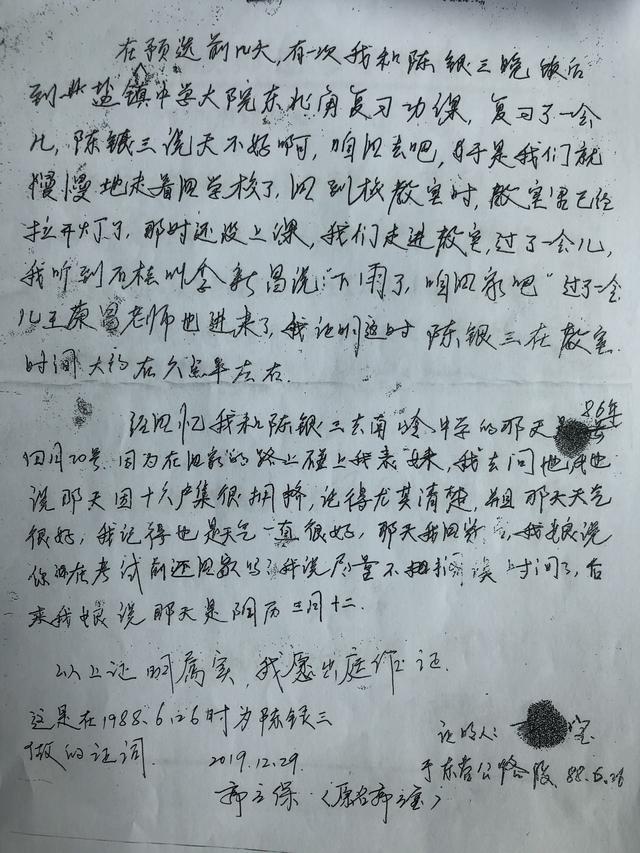 在预选前几天,有一次我和陈银三晚饭后
到北盐镇中学大院东北角复习功课,复习了一会
儿,陈银三说天不好啊,咱回去吧,于是我们就
慢慢地走着回学校了,回到校教室时,教室里已经
拉开灯了,那时还没上课,我们走进教室,过了一会儿,
我听到石桂叫李新昌说:“下雨了,咱回家吧”过了一会
儿王康富老师也进来了,我证明这时陈银三在教室
时间大约在六点半左右.
经回忆我和陈银三去南岭中学的那天86年
四月20号,因为在回家的路上碰上我表妹,我去问她
说那天因十六户集很拥挤,记得尤其清楚,且那天天气
很好,我记得也是天气一直很好,那天我回家,我娘说
你怎在考试前还回家吗?我说尽量不耽误时间了,后
来我娘说那天是阴历三月十二.
以上证明属实,我愿出庭作证.
这是在1988.6.26时为陈银三
做的证词. 2019.12.29.
证明人: 宝
于东营公路段. 88.6.26
郭立保(原名郭立宝)